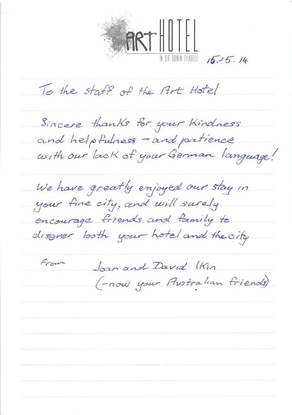 ART HOTEL
16.5.14
To the staff of the Art Hotel
Sincere thanks for your kindness
and helpfulness – and patience
with our lack of your German language!
We have greatly enjoyed our stay in
your fine city, and will surely
encourage friends and family to
discover both your hotel and the city
From
Joan and David Ikin
(– now your Australian friends)